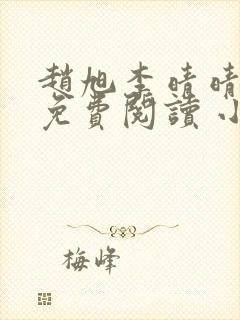 趙旭李晴晴
免費閱讀小
梅峰